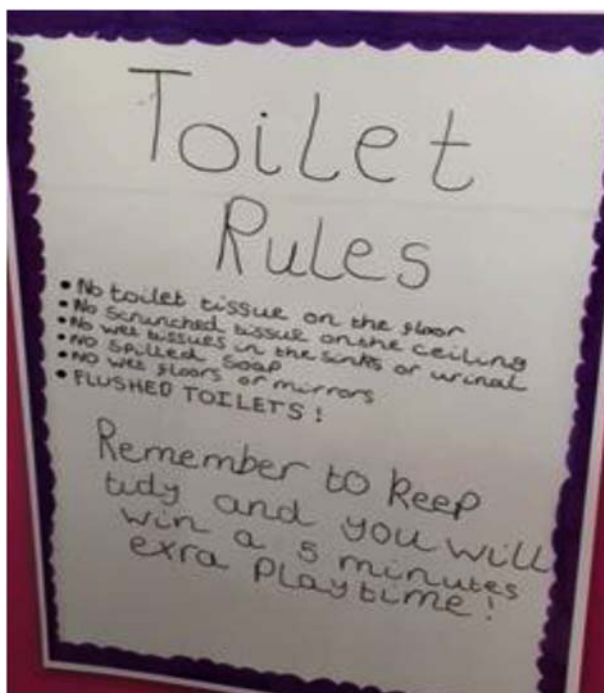 Toilet
Rules
• No toilet tissue on the floor
• No scrunched tissue on the ceiling
• No wet tissues in the sinks or urinal
• NO Spilled Soap
• NO wet floors or mirrors
• FLUSHED TOILETS !
Remember to keep
tidy and you will
win a 5 minutes
exra playtime !